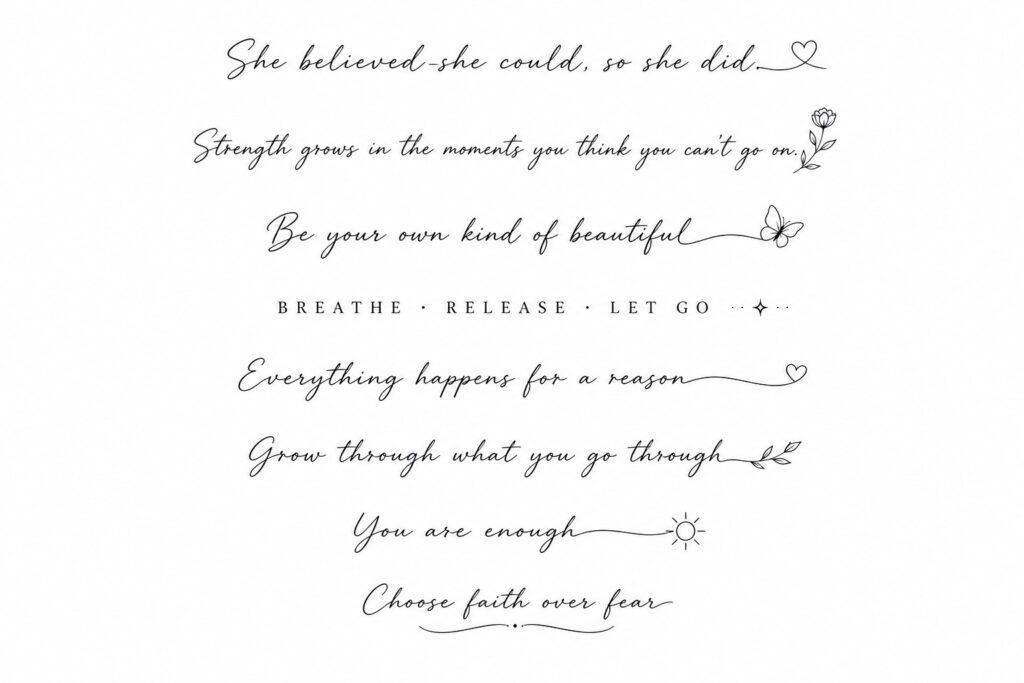 She believed-she could, so she did.
Strength grows in the moments you think you can't go on.
Be your own kind of beautiful
BREATHE · RELEASE · LET GO
Everything happens for a reason
Grow through what you go through
You are enough
Choose faith over fear